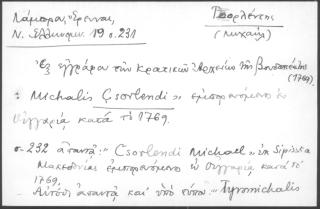 Λάμπρος, Έρευναι,
Ν. Ἑλληνομν. 19 σ. 231
Τσορλέντης
(Μιχαήλ)
Ἐξ ἐγγράφου τῶν κρατικῶν Ἀρχείων τῆς Βουδαπέστης
(1769).
: Michalis Csorlendi », ἐμπορευόμενος ἐν
Οὑγγαρίᾳ κατὰ τὸ 1769.
σ. 232 ἀπαντᾷ: "Csorlendi Michael », ἐκ Sipiska
Μακεδονίας ἐμπορευόμενος ἐν Οὑγγαρίᾳ κατὰ τὸ
1769.
Αὐτόθι ἀπαντᾷ καὶ ὑπὸ τύπον "Tyromichalis